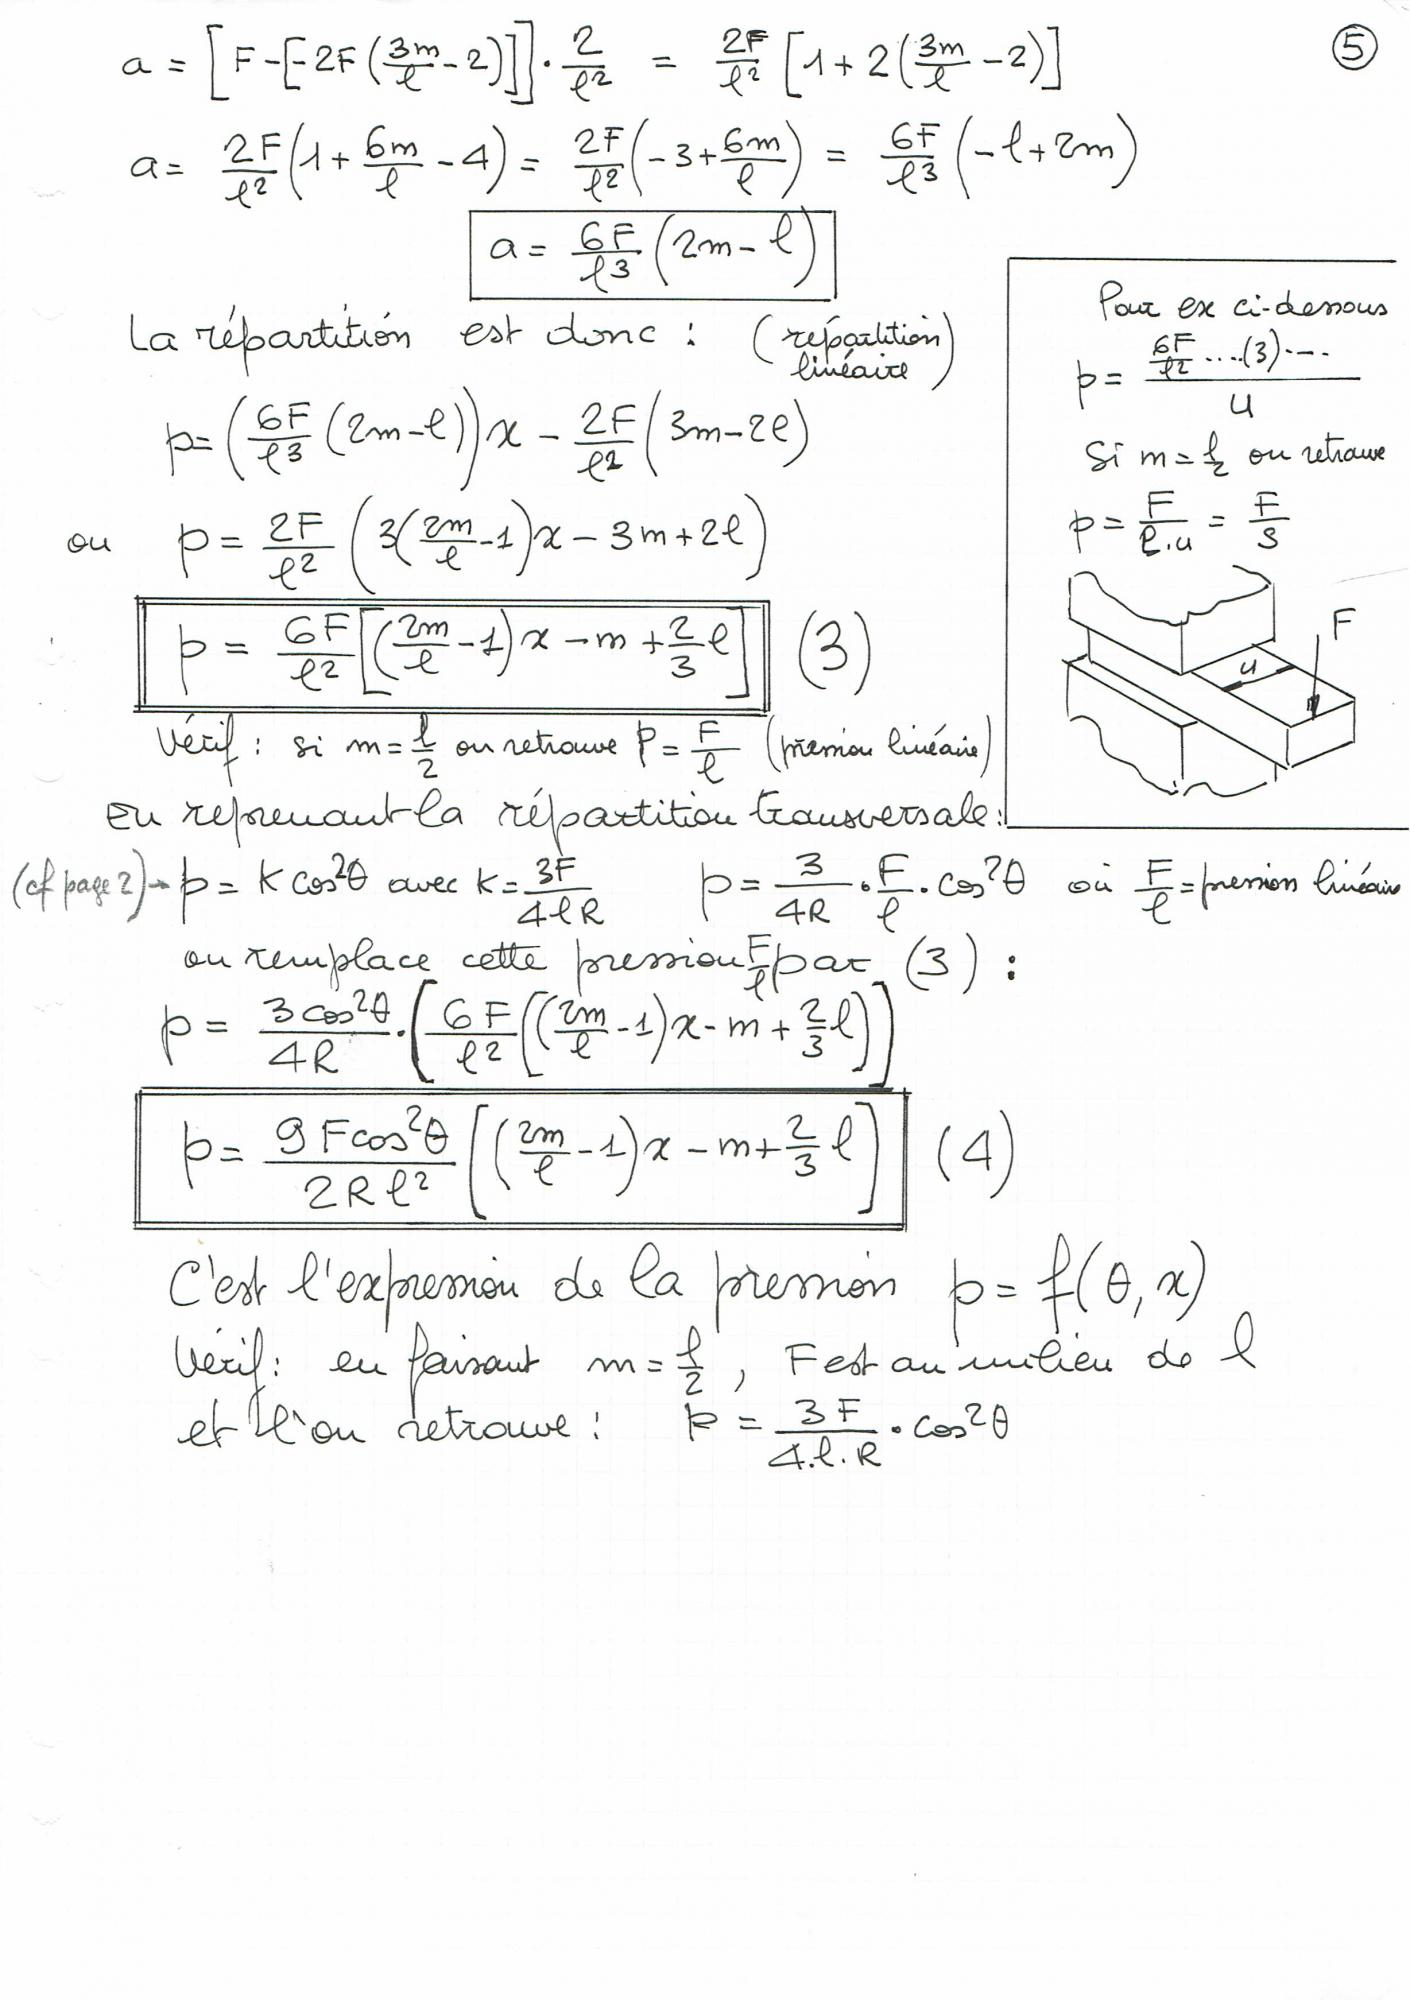 ⑤
a = [F - [-2F(3m/ℓ - 2)]] · 2/ℓ² = 2F/ℓ² [1 + 2(3m/ℓ - 2)]
a = 2F/ℓ² (1 + 6m/ℓ - 4) = 2F/ℓ² (-3 + 6m/ℓ) = 6F/ℓ³ (-ℓ + 2m)
a = 6F/ℓ³ (2m - ℓ)
La répartition est donc : (répartition linéaire)
p = (6F/ℓ³ (2m - ℓ)) x - 2F/ℓ² (3m - 2ℓ)
ou p = 2F/ℓ² (3(2m/ℓ - 1)x - 3m + 2ℓ)
p = 6F/ℓ² [(2m/ℓ - 1)x - m + 2/3 ℓ] (3)
Vérif : si m = ℓ/2 on retrouve p = F/ℓ (pression linéaire)
Pour ex ci-dessous
p = (6F/ℓ² ....(3)...)/u
Si m = ℓ/2 on retrouve
p = F/ℓ.u = F/S
F
u
En reprenant la répartition transversale :
(cf page 2) → p = K cos²θ avec K = 3F/4ℓR p = 3/4R · F/ℓ · cos²θ où F/ℓ = pression linéaire
on remplace cette pression F/ℓ par (3) :
p = 3cos²θ/4R · (6F/ℓ² ((2m/ℓ - 1)x - m + 2/3 ℓ))
p = 9Fcos²θ/2Rℓ² [(2m/ℓ - 1)x - m + 2/3 ℓ] (4)
C'est l'expression de la pression p = f(θ, x)
Vérif : en faisant m = ℓ/2, F est au milieu de ℓ
et l'on retrouve : p = 3F/4.ℓ.R · cos²θ